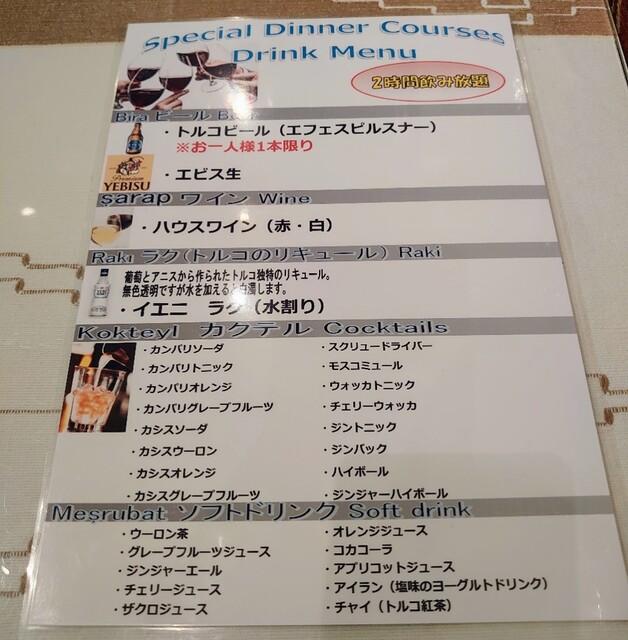 Special Dinner Courses
Drink Menu
2時間飲み放題
Bira ビール Beer
・トルコビール（エフェスピルスナー）
※お一人様1本限り
Premium
YEBISU
・エビス生
şarap ワイン Wine
・ハウスワイン（赤・白）
Rakı ラク(トルコのリキュール) Raki
葡萄とアニスから作られたトルコ独特のリキュール。
無色透明ですが水を加えると白濁します。
・イエニ ラク（水割り）
Kokteyl カクテル Cocktails
・カンパリソーダ
・カンパリトニック
・カンパリオレンジ
・カンパリグレープフルーツ
・カシスソーダ
・カシスウーロン
・カシスオレンジ
・カシスグレープフルーツ
・スクリュードライバー
・モスコミュール
・ウォッカトニック
・チェリーウォッカ
・ジントニック
・ジンバック
・ハイボール
・ジンジャーハイボール
Meşrubat ソフトドリンク Soft drink
・ウーロン茶
・グレープフルーツジュース
・ジンジャーエール
・チェリージュース
・ザクロジュース
・オレンジジュース
・コカコーラ
・アプリコットジュース
・アイラン（塩味のヨーグルトドリンク）
・チャイ（トルコ紅茶）